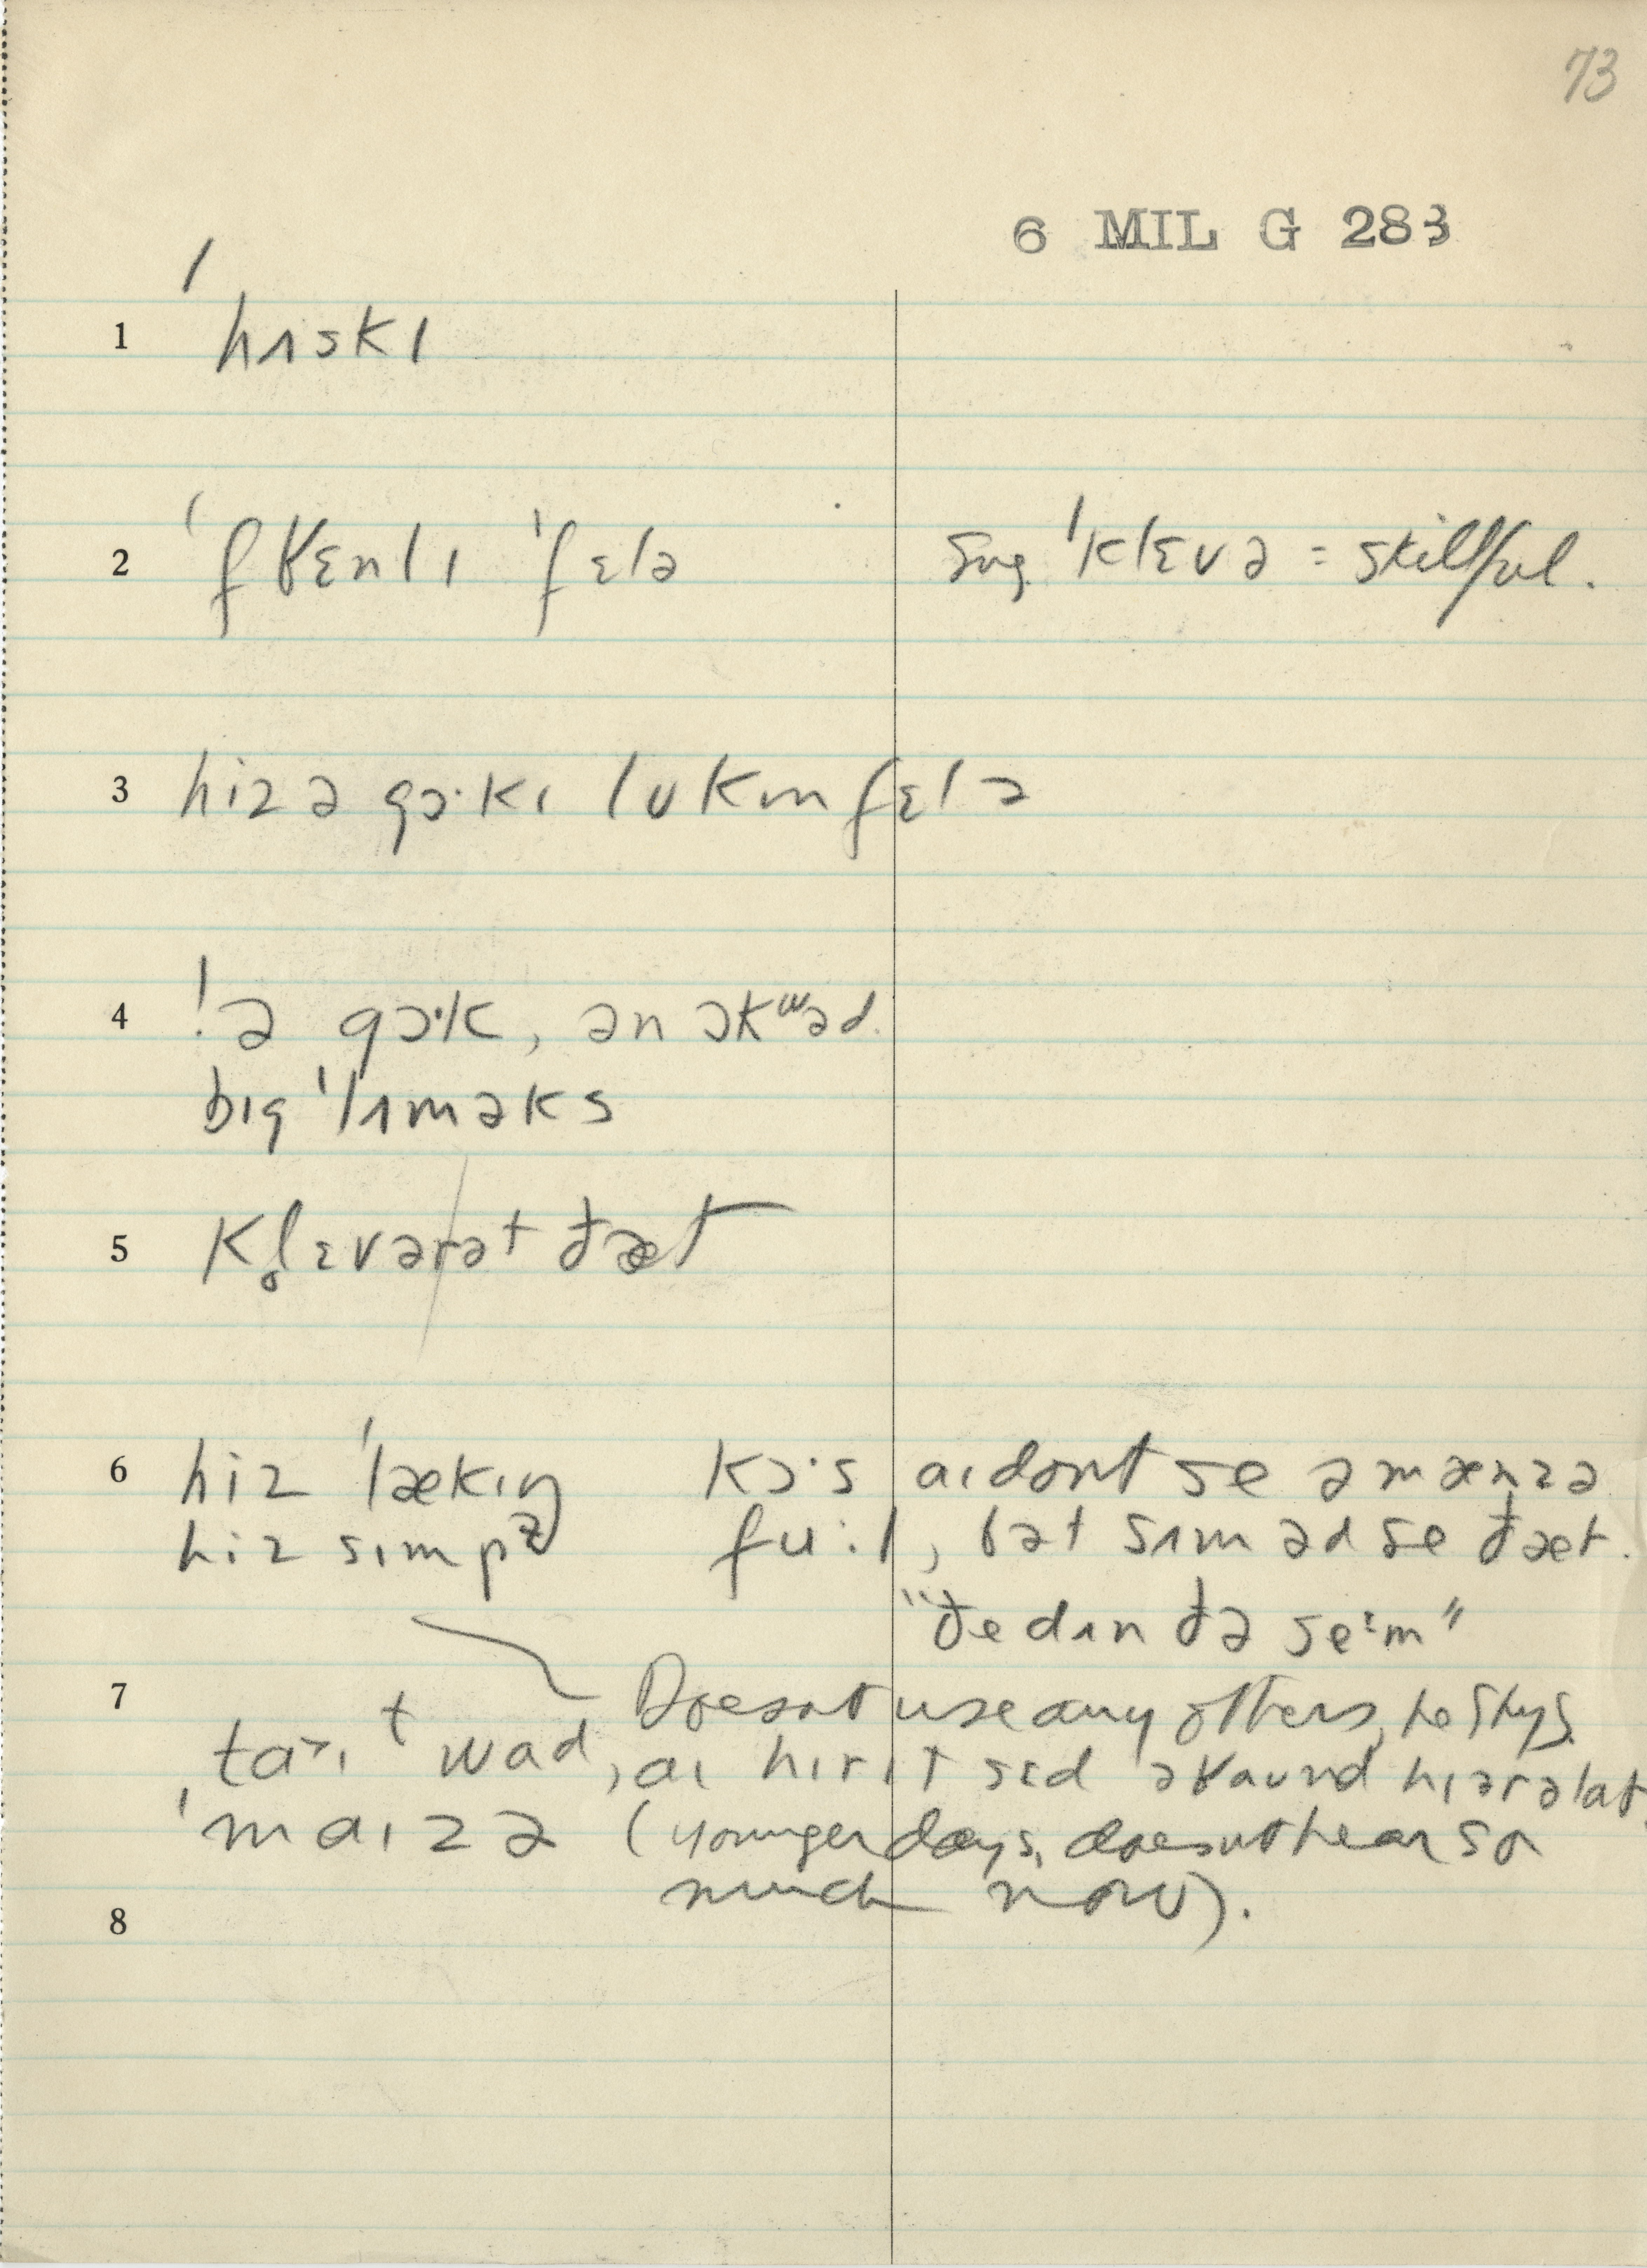 73
6 MIL G 283
1 ˈhʌskɪ
2 ˈfʁɛnlɪ ˈfɛlə Sug. ˈklɛvə = skillful.
3 hiz ə gɔ·kɪ lʊkɪn fɛlə
4 ! ə gɔ·k, ən ɔkʷəd
bɪg ˈlʌməks
5 kl̥ɛvərət ðæt
6 hiz ˈlækɪŋ kɔ·s aɪ dont se ə mænz ə
hiz sɪmpɫ fu·l, bət sʌm əd se ðæt.
"ðe dɪn ðə se·m"
7 Doesn't use any others, he says.
taɪt wad, aɪ hɪr ɪt sɛd əʁaund hɪər ə lat
ˈmaɪzə (younger days, doesn't hear so
much now).
8